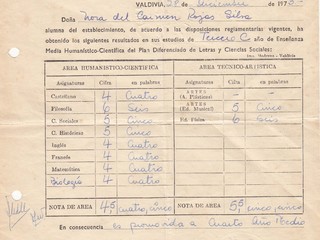 VALDIVIA, 28 de Diciembre de 1973
Doña Nora del Carmen Rozas Silva
alumna del establecimiento, de acuerdo a las disposiciones reglamentarias vigentes, ha
obtenido los siguientes resultados en sus estudios de Tercero C año de Enseñanza
Media Humanístico-Científica del Plan Diferenciado de Letras y Ciencias Sociales:
AREA HUMANISTICO-CIENTIFICA AREA TECNICO-ARTISTICA
Asignaturas Cifra en palabras Asignaturas Cifra en palabras
Castellano 4 Cuatro ARTES (A. Plásticas)
Filosofía 6 Seis ARTES (Ed. Musical) 5 Cinco
C. Sociales 5 Cinco Ed. Física 6 Seis
C. Históricas 5 Cinco
Inglés 4 Cuatro
Francés 4 Cuatro
Matemática 4 Cuatro
Biología 4 Cuatro
NOTA DE AREA 4,5 Cuatro, cinco NOTA DE AREA 5,5 cinco, cinco
En consecuencia es promovida a Cuarto Año Medio